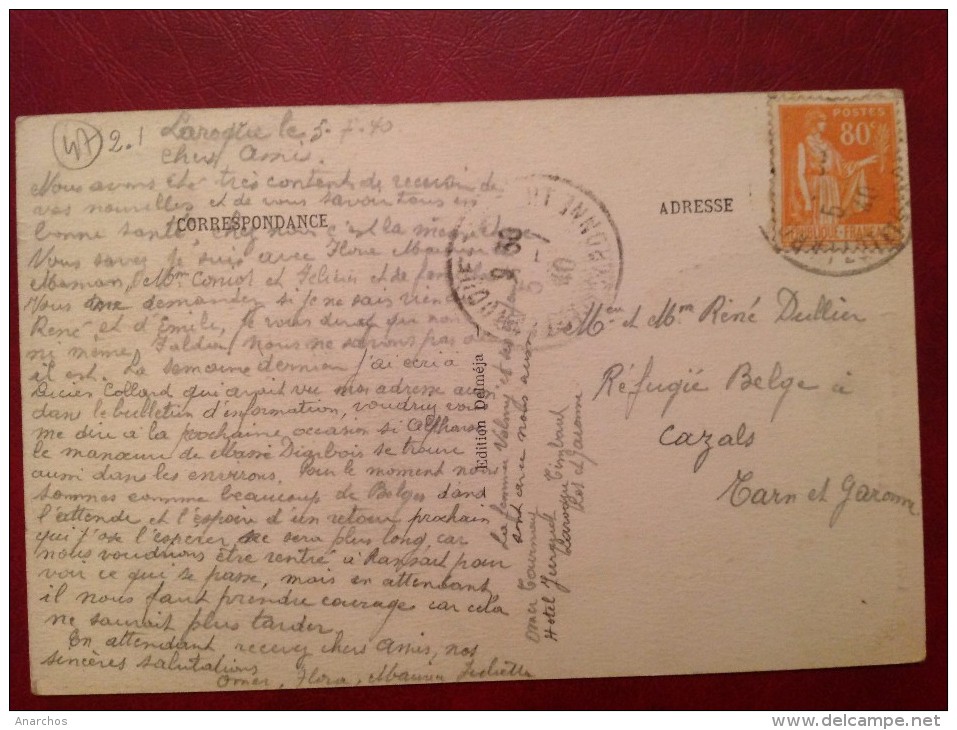 47 2.1
Laroque le 5-7-40
Chers Amis.
Nous avons été très content de recevoir de
vos nouvelles et de vous savoir tous en
bonne santé, chez nous c'est la même
CORRESPONDANCE
Vous savez je suis avec Flore Maurice
Maman, Mme et
Vous me demandez si je ne sais rien
René et d'Émile, je vous dirai que non
ni même nous ne savons pas où
il est. La semaine dernière j'ai écri à
Lucien Collard qui avait vu mon adresse aussi
dans le bulletin d'information, voudriez vous
me dire à la prochaine occasion si Alphonse
le manœuvre de Massé se trouve
aussi dans les environs. Pour le moment nous
sommes comme beaucoup de Belges dans
l'attende et l'espoire d'un retour prochain
qui j'ose l'esperer ne sera plus long car
nous voudrions être rentré à Ransart pour
voir ce qui se passe, mais en attendant
il nous faut prendre courage car cela
ne saurait plus tarder.
En attendant recevez chers Amis, nos
sincères salutations
Omer, Flora, Maurice Juliette
La femme Valmy et ses
sont avec nous aussi
Omer Tournay
Hotel
Laroque Timbaut
Lot et Garonne
Edition Delméja
ADRESSE
POSTES
80c
REPUBLIQUE FRANÇAISE
9 30
5
40
Mr et Mme René Dullier
Réfugié Belge à
Cazals
Tarn et Garonne
Anarchos
www.delcampe.net